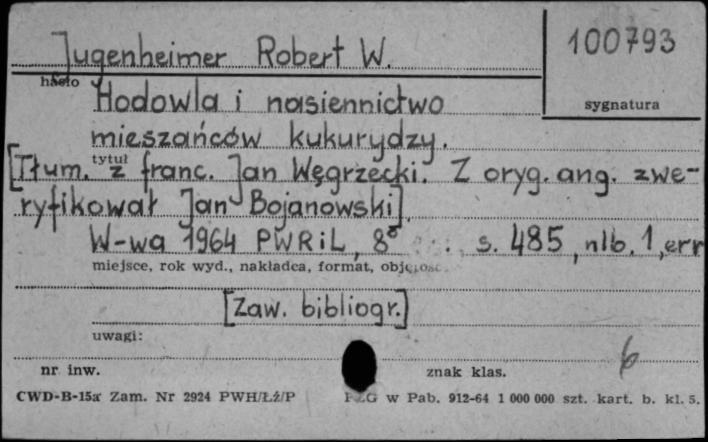 Jugenheimer Robert W.
100793
hasło
sygnatura
Hodowla i nasiennictwo
mieszańców kukurydzy.
tytuł
[Tłum. z franc. Jan Węgrzecki. Z oryg. ang. zwe-
ryfikował Jan Bojanowski].
W-wa 1964 PWRiL, 8° s. 485, nlb. 1, err
miejsce, rok wyd., nakładca, format, objętość
[Zaw. bibliogr.]
uwagi:
6
nr inw.
znak klas.
CWD-B-15a Zam. Nr 2924 PWH/Łź/P
PZG w Pab. 912-64 1 000 000 szt. kart. b. kl. 5.